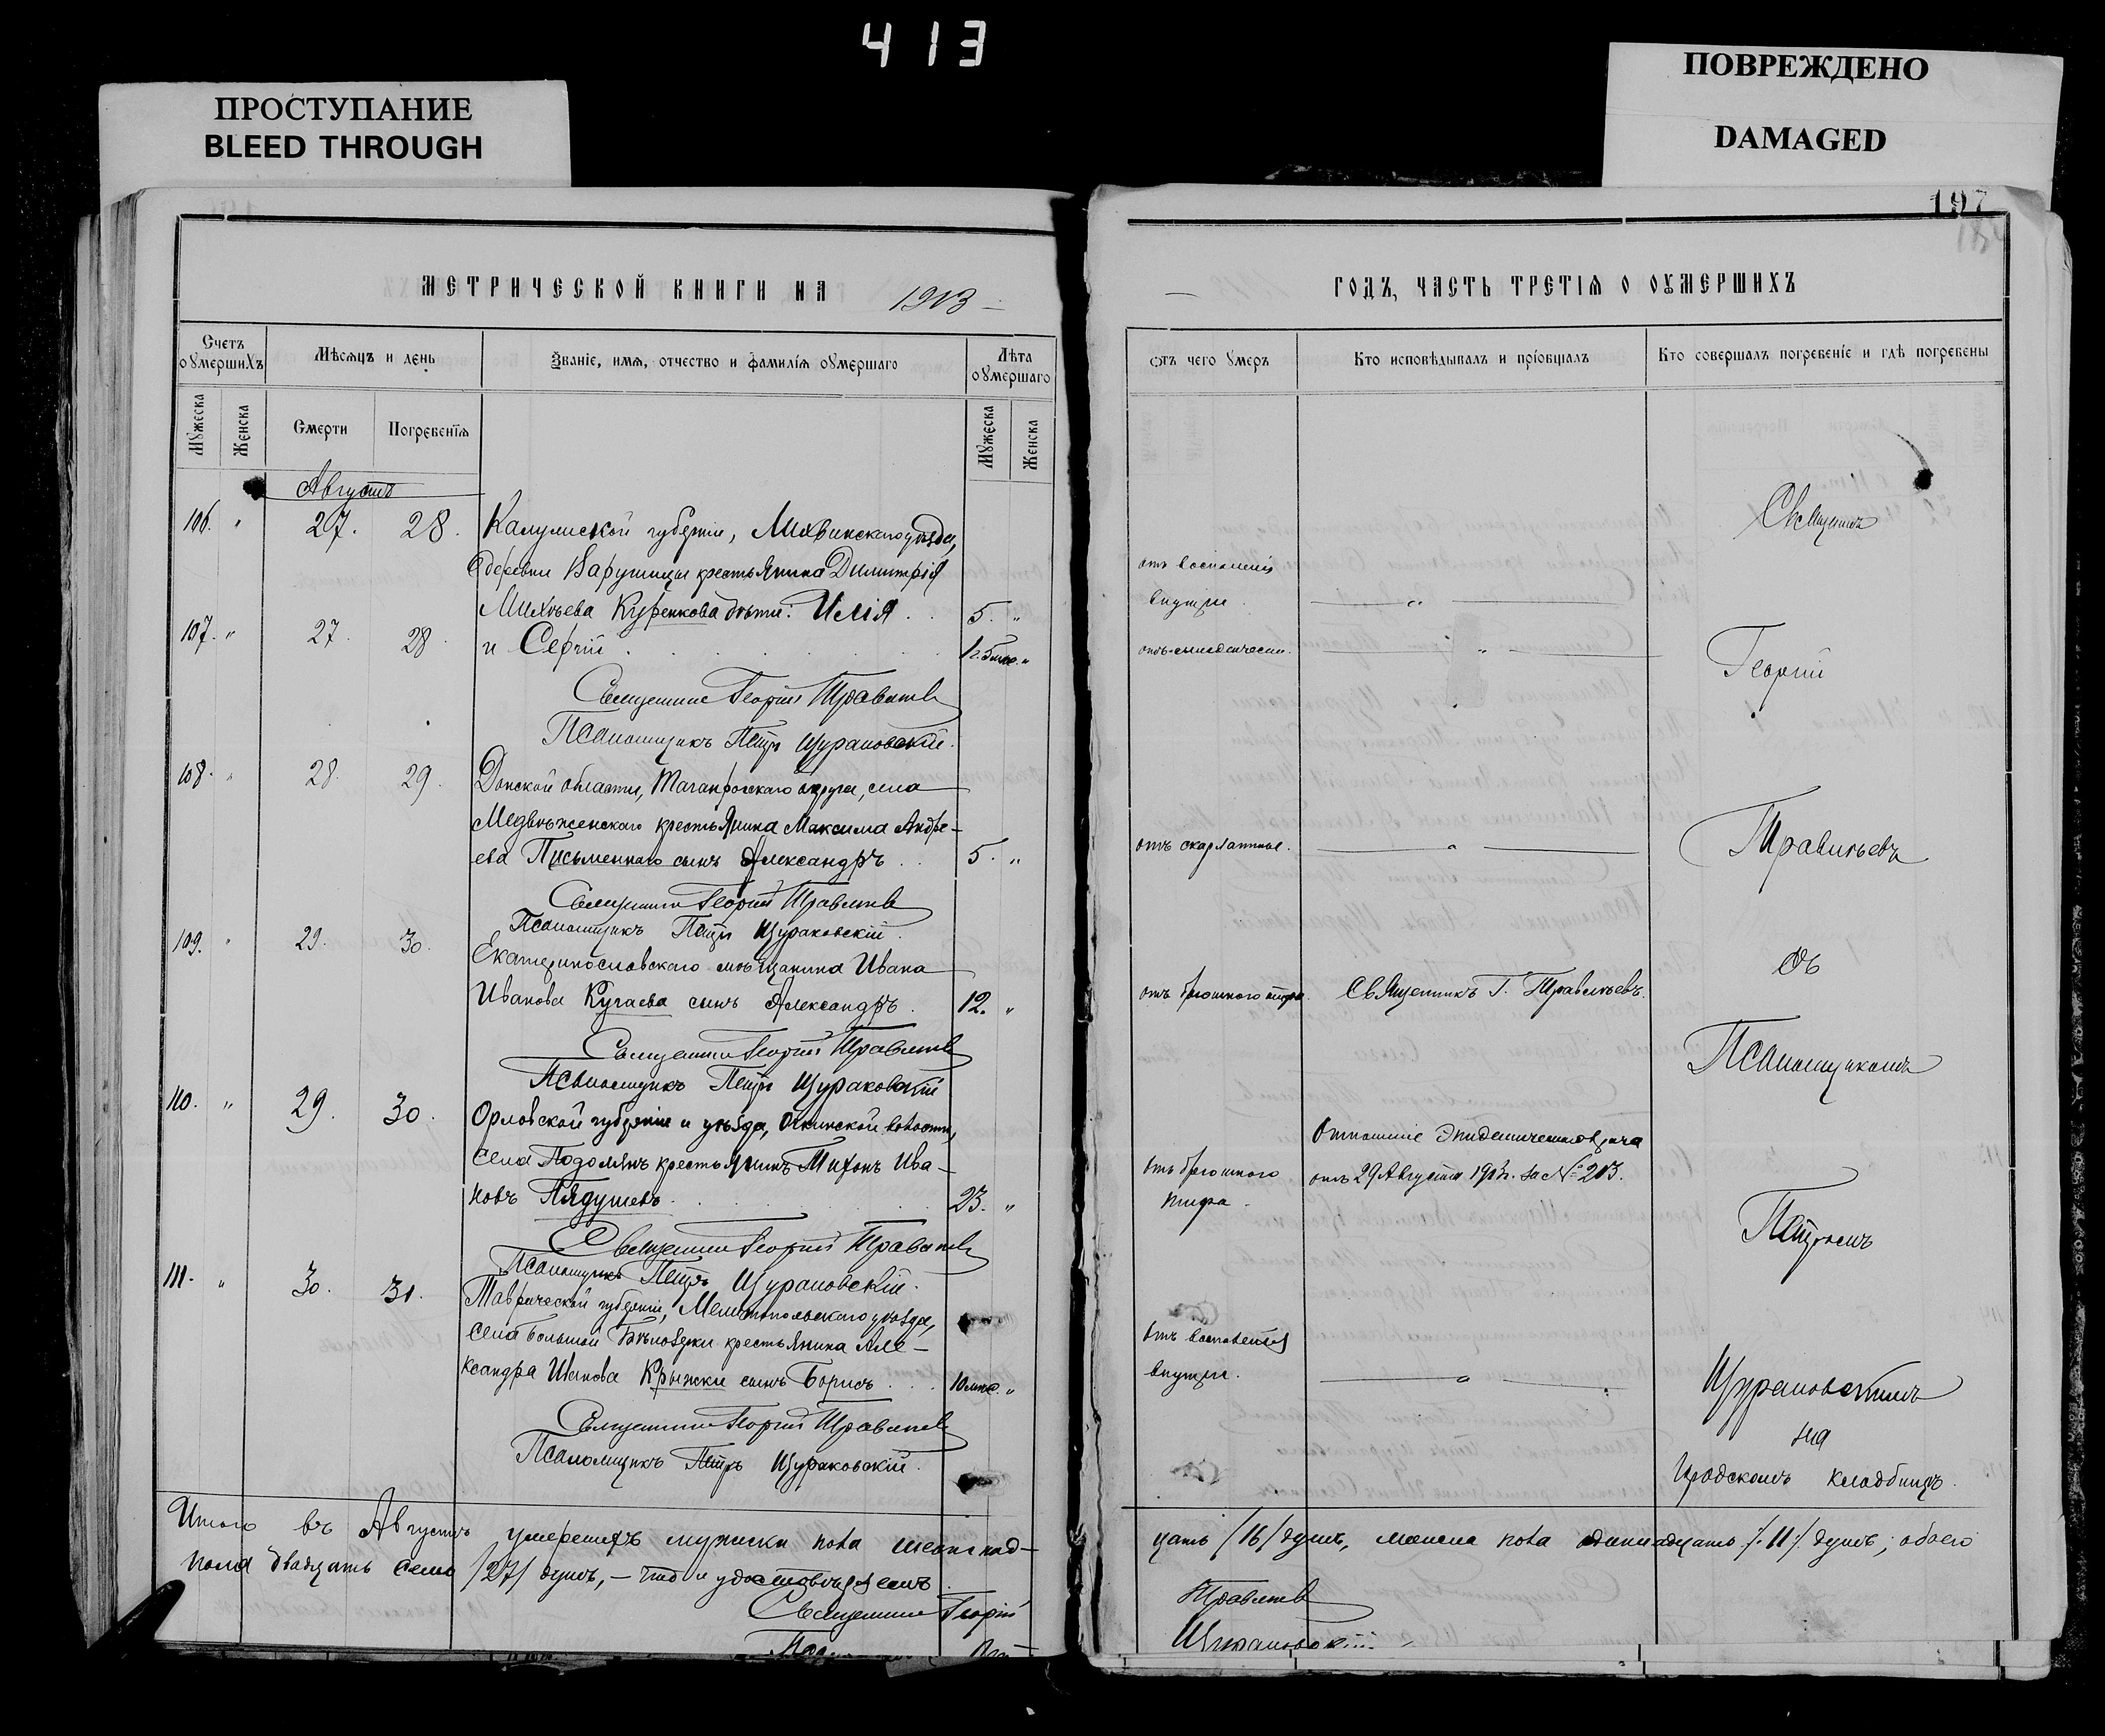 413
ПРОСТУПАНИЕ
BLEED THROUGH
ПОВРЕЖДЕНО
DAMAGED
197
МЕТРИЧЕСКОЙ КНИГИ НА 1913
Счетъ оумершихъ
Мѣсяцъ и день
Званіе, имя, отчество и фамилія оумершаго
Лѣта оумершаго
Мужеска
Женска
Смерти
Погребенія
Мужеска
Женска
Августъ
106. " 27. 28. Калужской губерніи, Лихвинскаго уѣзда,
деревни крестьянина Димитрія
Михѣева Куренкова дѣти: Илія 5. "
107. " 27. 28. и Сергій 1 г. 5 мѣс. "
Священникъ Георгій Травлѣевъ
Псаломщикъ Петръ Щураковскій.
108. " 28. 29. Донской области, Таганрогскаго округа, села
Медвѣженскаго крестьянина Максима Андре-
ева Письменнаго сынъ Александръ 5. "
Священникъ Георгій Травлѣевъ
Псаломщикъ Петръ Щураковскій.
109. " 29. 30. Екатеринославскаго мѣщанина Ивана
Иванова Кугаева сынъ Александръ 12. "
Священникъ Георгій Травлѣевъ
Псаломщикъ Петръ Щураковскій
110. " 29. 30. Орловской губерніи и уѣзда, волости,
села Подолянъ крестьянинъ Тихонъ Ива-
новъ Лядушевъ 23. "
Священникъ Георгій Травлѣевъ
Псаломщикъ Петръ Щураковскій.
111. " 30. 31. Таврической губерніи, Мелитопольскаго уѣзда,
села Большой Бѣлозерки крестьянина Але-
ксандра Иванова Крыжки сынъ Борисъ 10 мѣс. "
Священникъ Георгій Травлѣевъ
Псаломщикъ Петръ Щураковскій.
Итого въ Августѣ умершихъ мужска пола шестнад-
пола двадцать семь /27/ душъ, – что и удостовѣряемъ
Священникъ Георгій
ГОДЪ, ЧАСТЬ ТРЕТІЯ О ОУМЕРШИХЪ
Отъ чего умеръ
Кто исповѣдывалъ и пріобщалъ
Кто совершалъ погребеніе и гдѣ погребены
отъ воспаленія
внутри. "
"
отъ скарлатины. "
отъ брюшного тифа. Священникъ Г. Травлѣевъ.
Отношеніе Эпидемическаго врача
отъ брюшного отъ 29 Августа 1913 г. за № 203.
тифа.
отъ воспаленія
внутри. "
Священникъ
Георгій
Травлѣевъ
съ
Псаломщикомъ
Петромъ
Щураковскимъ
на
городскомъ кладбищѣ.
цать /16/ душъ, женска пола одиннадцать /11/ душъ; обоего
Травлѣевъ
Щураковскій